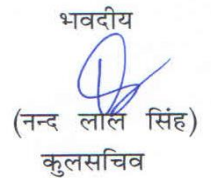 भवदीय
(नन्द लाल सिंह)
कुलसचिव